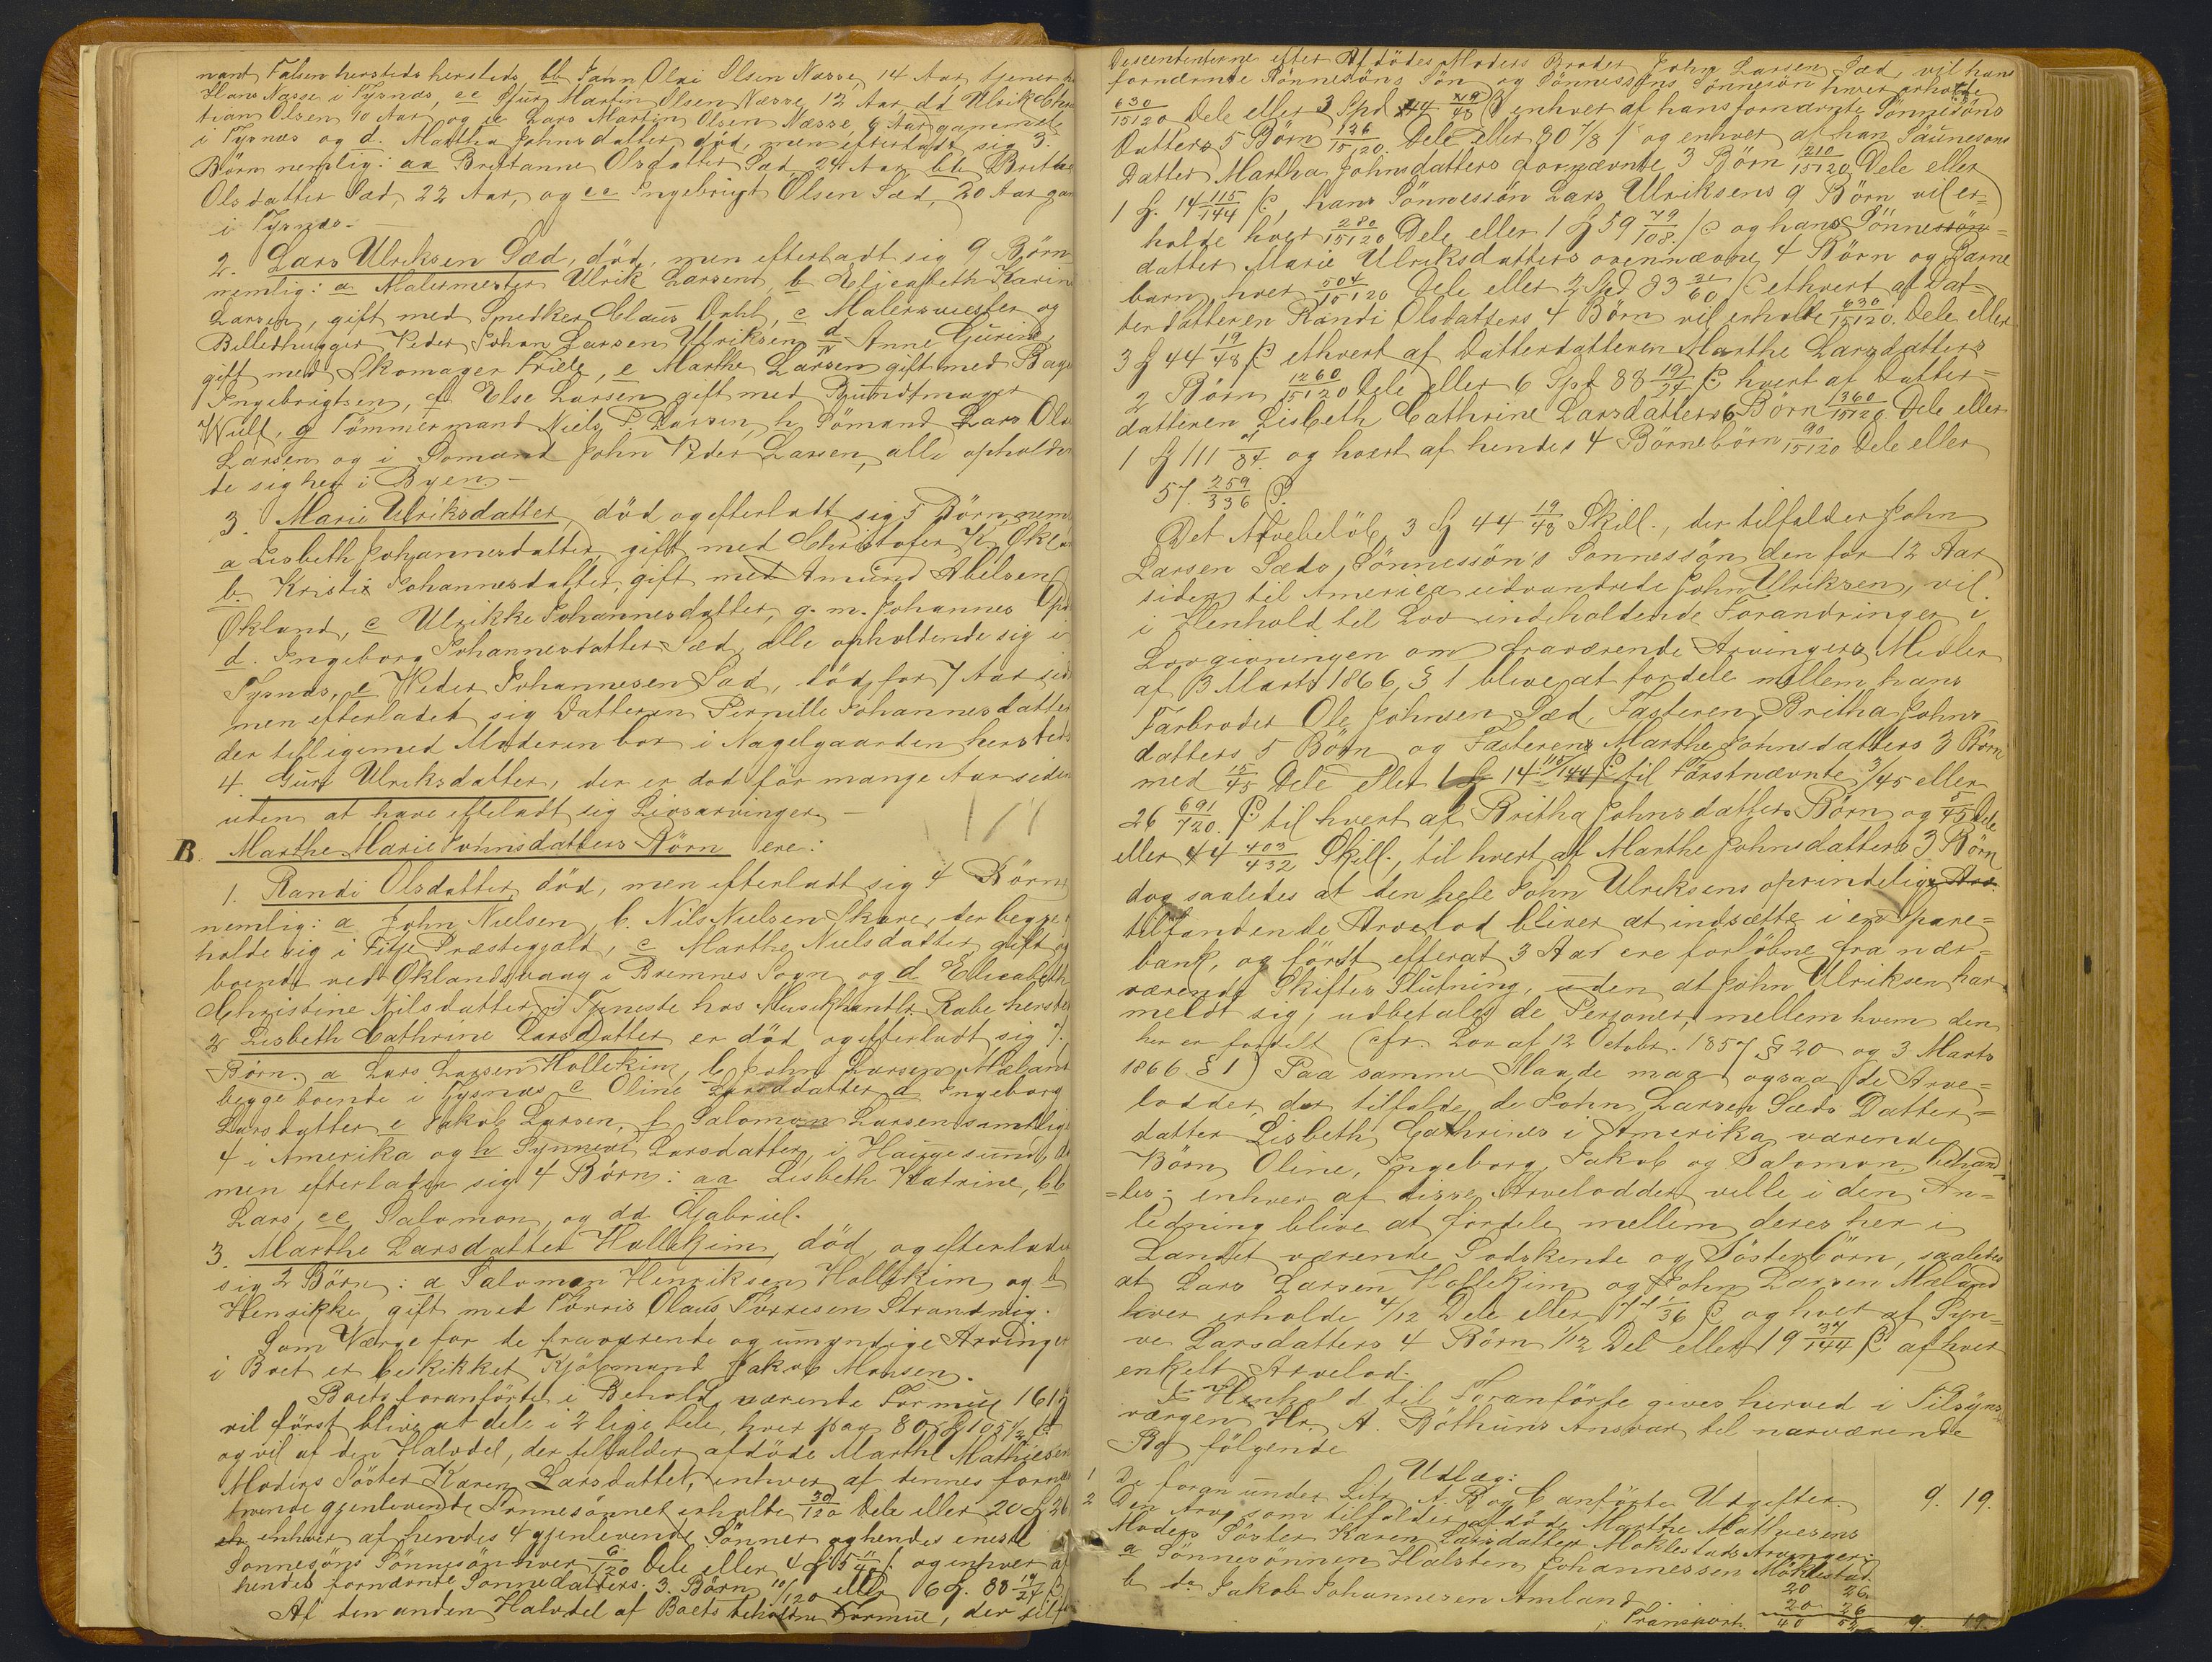 nant Falsen hersteds hersteds, bb Jahn Olai Olsen Næsse, 14 Aar, tjener
Hans Næsse i Tysnæs, cc Sjur Martin Olsen Næsse 12 Aar dd Ulrik Chri
tian Olsen 10 Aar og ee Lars Martin Olsen Næsse, 6 Aar gammel
i Tysnæs og d. Martha Johnsdatter død, men efterladt sig 3.
Børn nemlig: aa Britanne Olsdatter Sæd, 24 Aar bb Britha
Olsdatter Sæd, 22 Aar, og cc Ingebrigt Olsen Sæd, 20 Aar gam
i Tysnæs.
2. Lars Ulriksen Sæd, død, men efterladt sig 9 Børn
nemlig: a Malermester Ulrik Larsen, b Elisabeth Karin
Larsen, gift med Snedker Claus Dahl, c Malersvester og
Billedhugger Peder Johan Larsen Ulriksen d Anne Gurine
gift med Skomager Friele, e Marthe Larsen gift med Bage
Ingebrigtsen, f. Else Larsen gift med Bundtmager
Wulf, g Tömmermand Niels P. Larsen, h Sömand Lars Ola
Larsen og i Somand John Peder Larsen, alle opholden
de sig her i Byen -
3. Marie Ulriksdatter, död og efterladt sig 5 Börn, nem
a Lisbeth Johannesdatter, gift med Christofer K. Økla
b. Kristi Johannesdatter, gift med Amund Abilsen
Økland, c Ulrikke Johannesdatter, g. m. Johannes Op
d. Ingeborg Johannesdatter Sæd, alle opholdende sig i
Tysnæs, e Peder Johannesen Sæd, död for 7 Aar sid
men efterladet sig Datteren Pernille Johannesdatter
der tilligemed Moderen bor i Nagelgaarden hersteds
4. Guri Ulriksdatter, der er död för mange Aar siden
uden at have efterladt sig Livsarvinger -
B. Marthe Marie Johnsdatters Börn ere:
1. Randi Olsdatter död, men efterladt sig 4 Börn
nemlig: a John Nielsen, b. Nils Nielsen Skare, der begge
holde sig i Fitje Præstegjæld, c Marthe Nielsdatter gift og
boende ved Oklandsvaag i Bremnes Sogn og d Elisabeth
Christine Nilsdatter i Tjeneste hos Musikhandlr. Rabe herste
2 Lisbeth Cathrine Larsdatter er död og efterladt sig 7
Börn. a Lars Larsen Hollekim, b John Larsen Mæland
begge boende i Tysnæs c Oline Larsdatter d Ingeborg
Larsdatter e Jakob Larsen, f Salomon Larsen samtlige
4 i Amerika og h Synnevi Larsdatter, i Haugesund, d
men efterladte sig 4 Börn: aa Lisbeth Katrine, bb
Lars, cc Salomon, og dd Gabriel.
3. Marthe Larsdatter Hollekim död, og efterladt
sig 2 Börn: a Salomon Henriksen Hollekim og b
Henrikke, gift med Torris Olaus Torresen Strandvig.
Som Værge for de fraværende og umyndige Arvinger
i Boet er beskikket Kjöbmand Jakob Monsen.
Boets foranförte i Behold værende Formue 161
vil först blive at dele i 2 lige Dele, hver paa 80 105 1/2
og vil af den Halvdel, der tilfalder afdöde Marthe Mathiesens
Moders Söster Karen Larsdatter, enhver af dennes fornæ
tvende gjenlevende Sonnesönner erholde 30/120 Dele eller 20 26
enhver af hendes 4 gjenlevende Sönner og hendes eneste
Sonnesöns Sönnesön hver 6/120 Dele eller 4 5 og enhver af
hendes fornævnte Sonnedatters 3. Börn 10/120 eller 6 88 19/24
Af den anden Halvdel af Boets beholdne Formue, der tilfa
Descendenterne efter Afdödes Moders Broder John Larsen Sæd, vil hans
fornævnte Sönnesöns Sön og Sönnesöns Sönnesön hver erholde
630/15120 Dele eller 3 Spd 44 19/48 enhver af hans fornævnte Sönnesöns
Datters 5 Börn 126/15120 Dele eller 80 7/8 og enhver af han Sönnesons
Datter Martha Johnsdatters fornævnte 3 Börn 210/15120 Dele eller
1 14 115/144, hans Sönnesön Lars Ulriksens 9 Börn vil er=
holde hver 280/15120 Dele eller 1 59 79/108 og hans Sönnesön=
datter Marie Ulriksdatters ovennævne 4 Börn og Barne
barn hver 504/15120 Dele eller 2 Spd 83 31/60 ethvert af Dat=
terdatteren Randi Olsdatters 4 Börn vil erholde 630/15120 Dele eller
3 44 19/48 ethvert af Datterdatteren Marthe Larsdatters
2 Börn 1260/15120 Dele eller 6 Spd 88 19/24 hvert af Datter=
datteren Lisbeth Cathrine Larsdatters 6 Börn 360/15120 Dele eller
1 111 /84 og hvert af hendes 4 Börnebörn 90/15120 Dele eller
57. 259/336
Det Arvebelöb, 3 44 19/48 Skill., der tilfalder John
Larsen Sæds Sönnessön's Sonnessön den for 12 Aar
siden til America udvandrede John Ulriksen, vil
i Henhold til Lov indeholdende Forandringer i
Lovgivningen om fraværende Arvingers Midler
af 3 Marts 1866, § 1 blive at fordele mellem hans
Farbroder Ole Johnsen Sæd, Fasteren Britha Johns
datters 5 Börn og Fasterens Marthe Johnsdatters 3 Börn
med 15/45 Dele eller 1 14 115/144 til Förstnævnte 3/45 eller
26 691/720 til hvert af Britha Johnsdatters Börn og 5/45 Dele
eller 44 403/432 Skill., til hvert af Marthe Johnsdatters 3 Börn
dog saaledes at den hele John Ulriksens oprindelige Arv
tilfandende Arvelod bliver at indsætte i en Spare=
bank, og först efterat 3 Aar ere forlöbne fra nær=
værende Skiftes Slutning, uden at John Ulriksen har
meldt sig, udbetales de Personer, mellem hvem den
her er fordelt (cfr. Lov af 12 Octobr. 1857 § 20 og 3 Marts
1866 § 1) Paa samme Maade maa ogsaa de Arve=
lodder, der tilfalde de John Larsen Sæds Datter=
datter Lisbeth Cathrines i Amerika værende
Börn Oline, Ingeborg, Jakob og Salomon behand
=les; enhver af disse Arvelodder ville i den An=
ledning blive at fordele mellem deres her i
Landet værende Sodskende og Sösterbörn, saaledes
at Lars Larsen Hollekim og John Larsen Mæland
hver erholde 4/12 Dele eller 77 1/36 og hver af Syn=
ve Larsdatters 4 Börn 1/12 Del eller 19 37/144 af hver
enkelt Arvelod.
I Henhold til Foranförte gives herved i Tilsyns
værgen Hr. A. Böthuns Ansvar til nærværende
Bo følgende
Udlæg:
1 De foran under Litr. A. B og C anförte Udgifter. 9. 19.
2 Den Arv, som tilfalder afdöde Marthe Mathiesens
Moders Söster Karen Larsdatter Möklestads Arvinger:
a Sönnesönnen Halsten Johannessen Möklestad 20 26.
b do Jakob Johannesen Amland 20 26
Transport. 40 52 9. 19.